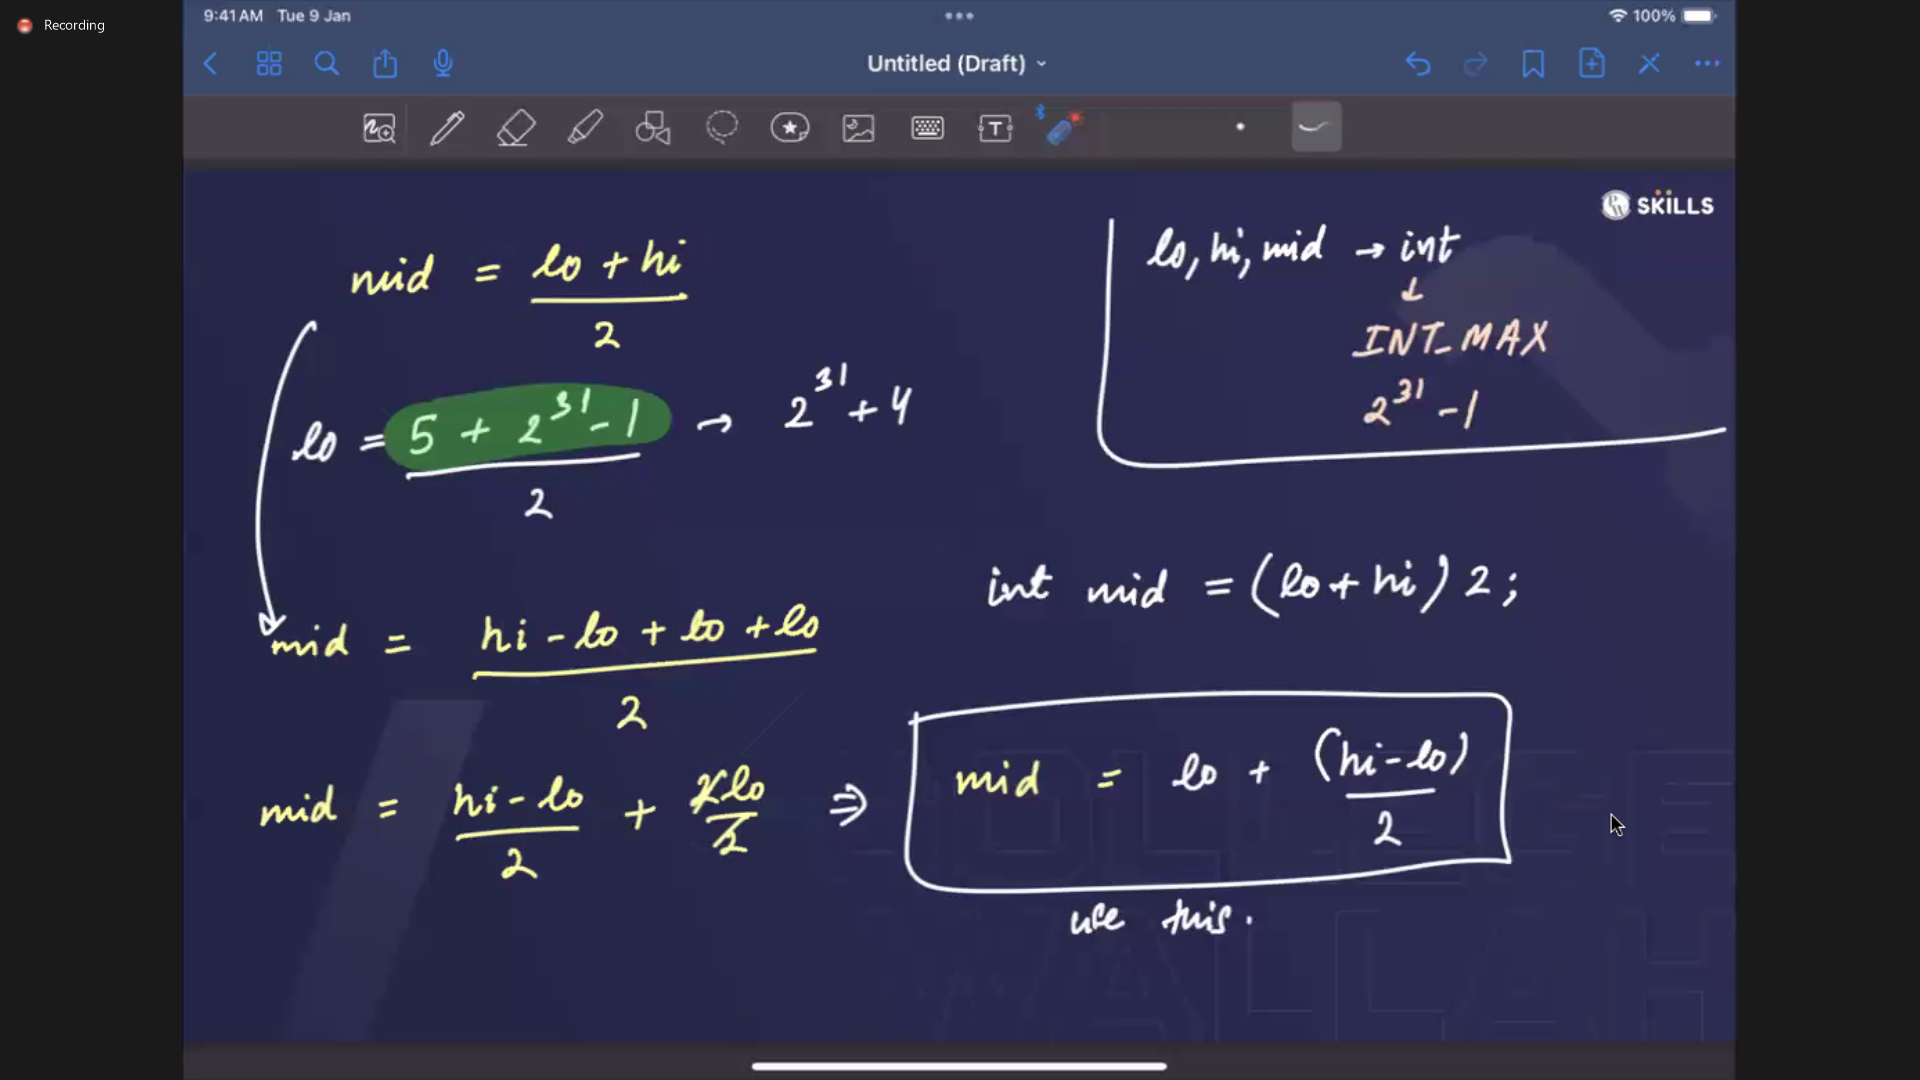 Recording
9:41 AM Tue 9 Jan
100%
Untitled (Draft)
T
PW SKILLS
mid = lo + hi
2
lo = 5 + 2^31 - 1 → 2^31 + 4
2
lo, hi, mid → int
↓
INT_MAX
2^31 - 1
int mid = (lo + hi) 2;
mid = hi - lo + lo + lo
2
mid = hi - lo + 2lo ⇒
2 2
mid = lo + (hi - lo)
2
use this.